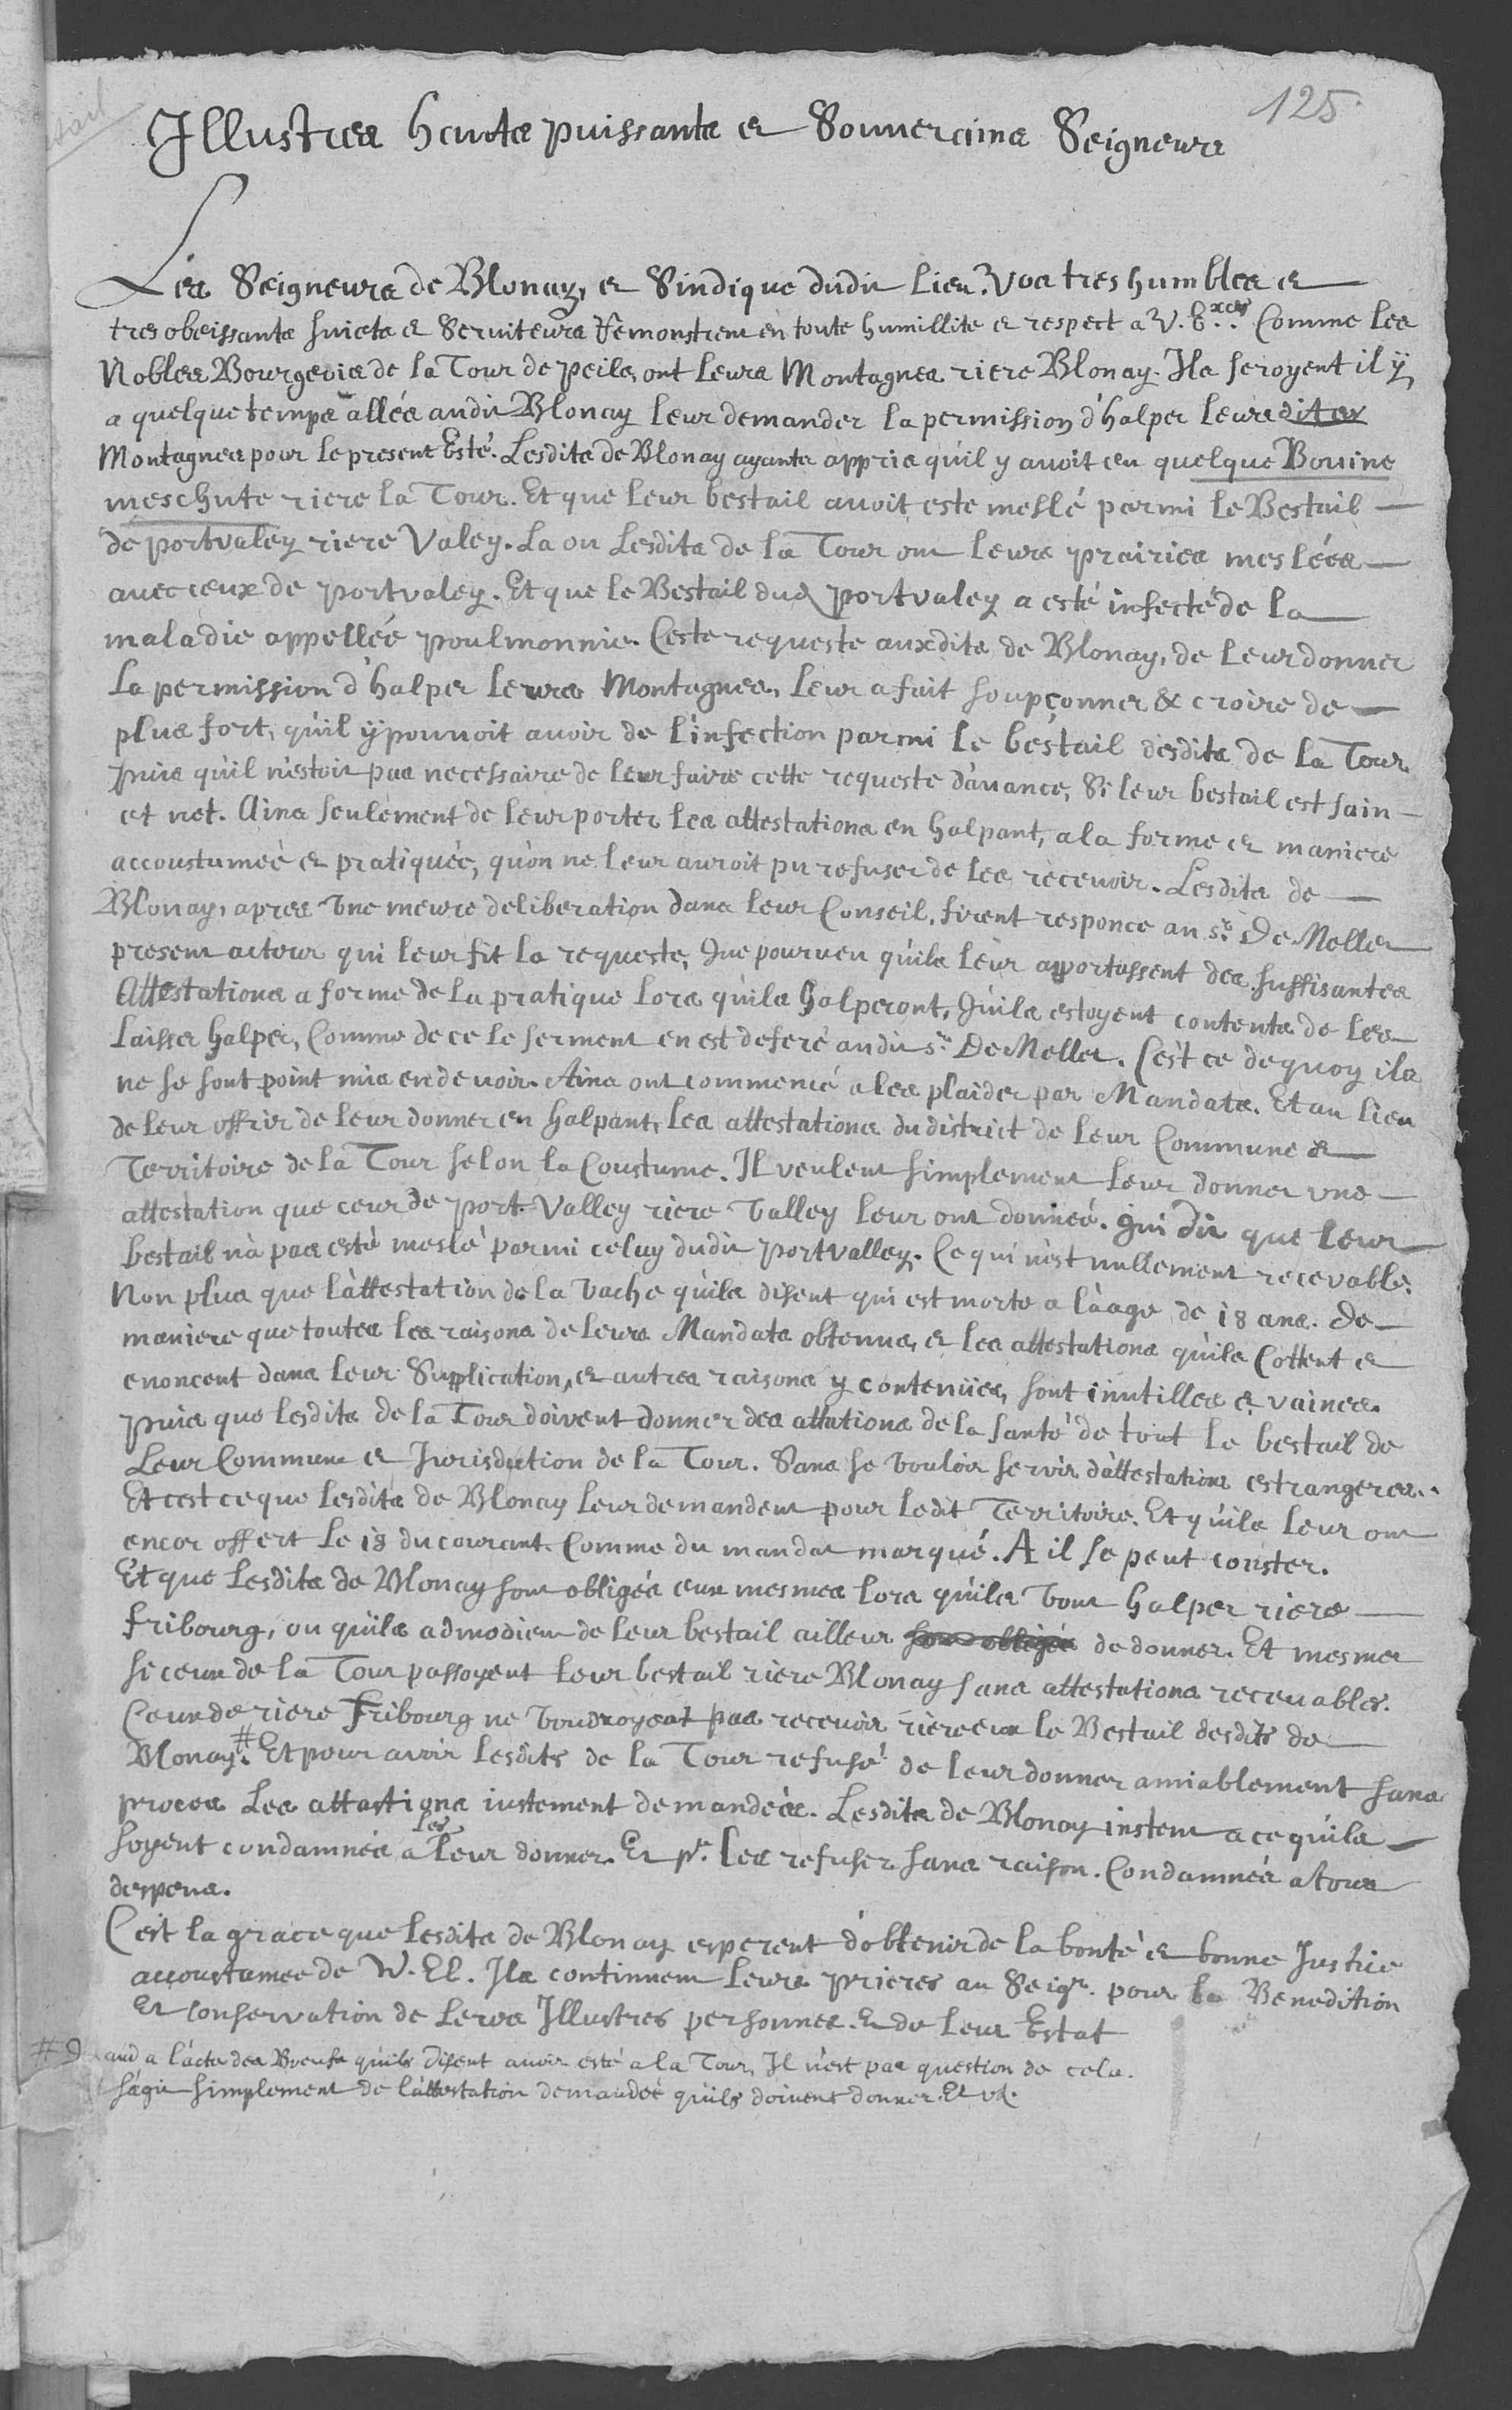 125.
Illustres hauts puissants et Souuerains Seigneurs
Les Seigneurs de Blonay, et Sindique dudit Lieu. Vos tres humbles et
tres obeissants suicts et Seruiteurs Remonstrent en toute humillite et respect a V. Exces. Comme les
Nobles Bourgeois de la Tour de peils, ont Leurs Montagnes riere Blonay. Ils seroyent il ÿ
a quelque temps allés audit Blonay Leur demander la permission d'halper Leurs dites
Montagnes pour le present Esté. Lesdits de Blonay ayants appris quil y auoit eu quelque Bouine
meschute riere la Tour. Et que leur bestail auoit este meslé parmi le Bestail
de portvaley riere Valey. La ou Lesdits de la Tour ont Leurs prairies meslées
auec ceux de portvaley. Et que le Bestail dud portvaley a esté infecté de la
maladie appellée poulmonnie. Ceste requeste auxdits de Blonay, de Leur donner
La permission d'halper Leurs Montagnes, Leur a fait soupçonner & croire de
plus fort, qu'il ÿ pouuoit auoir de l'infection parmi le béstail desdits de la Tour
puis qu'il n'estoit pas necessaire de leur faire cette requeste d'auance, Si leur bestail est sain
et net. Ains seulement de leur porter les attestations en halpant, a la forme et maniere
accoustumeé et pratiquée, qu'on ne leur auroit pu refuser de les recevoir. Lesdits de
Blonay, apres Une meure deliberation dans leur Conseil, firent responce au sr. De Mellet
present acteur qui leur fit la requeste, que pourueu qu'ils leur apportassent des suffisantes
Attestations a forme de la pratique lors qu'ils halperont, qu'ils estoyent contents de les
laisser halper, Comme de ce le serment en est deferé audit sr. De Mellet. C'est ce de quoy ils
ne se sont point mis en devoir. Ains ont commencé a les plaider par Mandats. Et au lieu
de leur offrir de leur donner en halpant, les attestations du district de leur Commune et
Territoire de la Tour selon la Coustume. Il veulent simplement leur donner une
attestation que ceux de port Valley riere Valley leur ont donneé. qui dit que leur
bestail n'à pas esté meslé parmi celuy dudit portvalley. Ce qui n'est nullement recevable.
Non plus que l'attestation de la vache qu'ils disent qui est morte a l'àage de 18 ans. De
maniere que toutes les raisons de leurs Mandats obtenus, et les attestations qu'ils Cottent et
enoncent dans leur Supplication, et autres raisons y contenües, sont inutilles et vaines.
puis que lesdits de la Tour doivent donner des attations de la santé de tout le bestail de
Leur Commune et Jurisdiction de la Tour. Sans se vouloir servir d'attestations estrangeres.
Et cest ce que lesdits de Blonay leur demandent pour ledit Territoire. Et qu'ils leur ont
encor offert le 18 du courant. Comme du mandat marqué. A il se peut conster.
Et que lesdits de Blonay sont obligés eux mesmes lors qu'ils vont halper riere
fribourg, ou qu'ils admodient de leur bestail ailleur sont obligés de donner. Et mesmes
si ceux de la Tour passoyent leur bestail riere Blonay sans attestations recevables.
Ceux de riere fribourg ne voudroyent pas recevoir riere eux le Bestail desdits de
Blonay.# Et pour avoir lesdits de la Tour refusé de leur donner amiablement sans
proces Les attastions iustement demandées. Lesdits de Blonay instent a ce qu'ils
soyent condamnés a les leur donner. Et pr. les refuser sans raison. Condamnés a tous
despens.
C'est la grace que lesdits de Blonay esperent d'obtenir de la bonté et bonne Justice
accoustumee de V. EE. Ils continuent leurs prieres au Seigr. pour la Benedition
Et Conservation de leurs Illustres personnes. et de leur Estat
# Quand a l'acte des Boeufs qu'ils disent auoir esté a la Tour, Il n'est pas question de cela.
s'agit simplement de l'attestation demandeé qu'ils doivent donner.